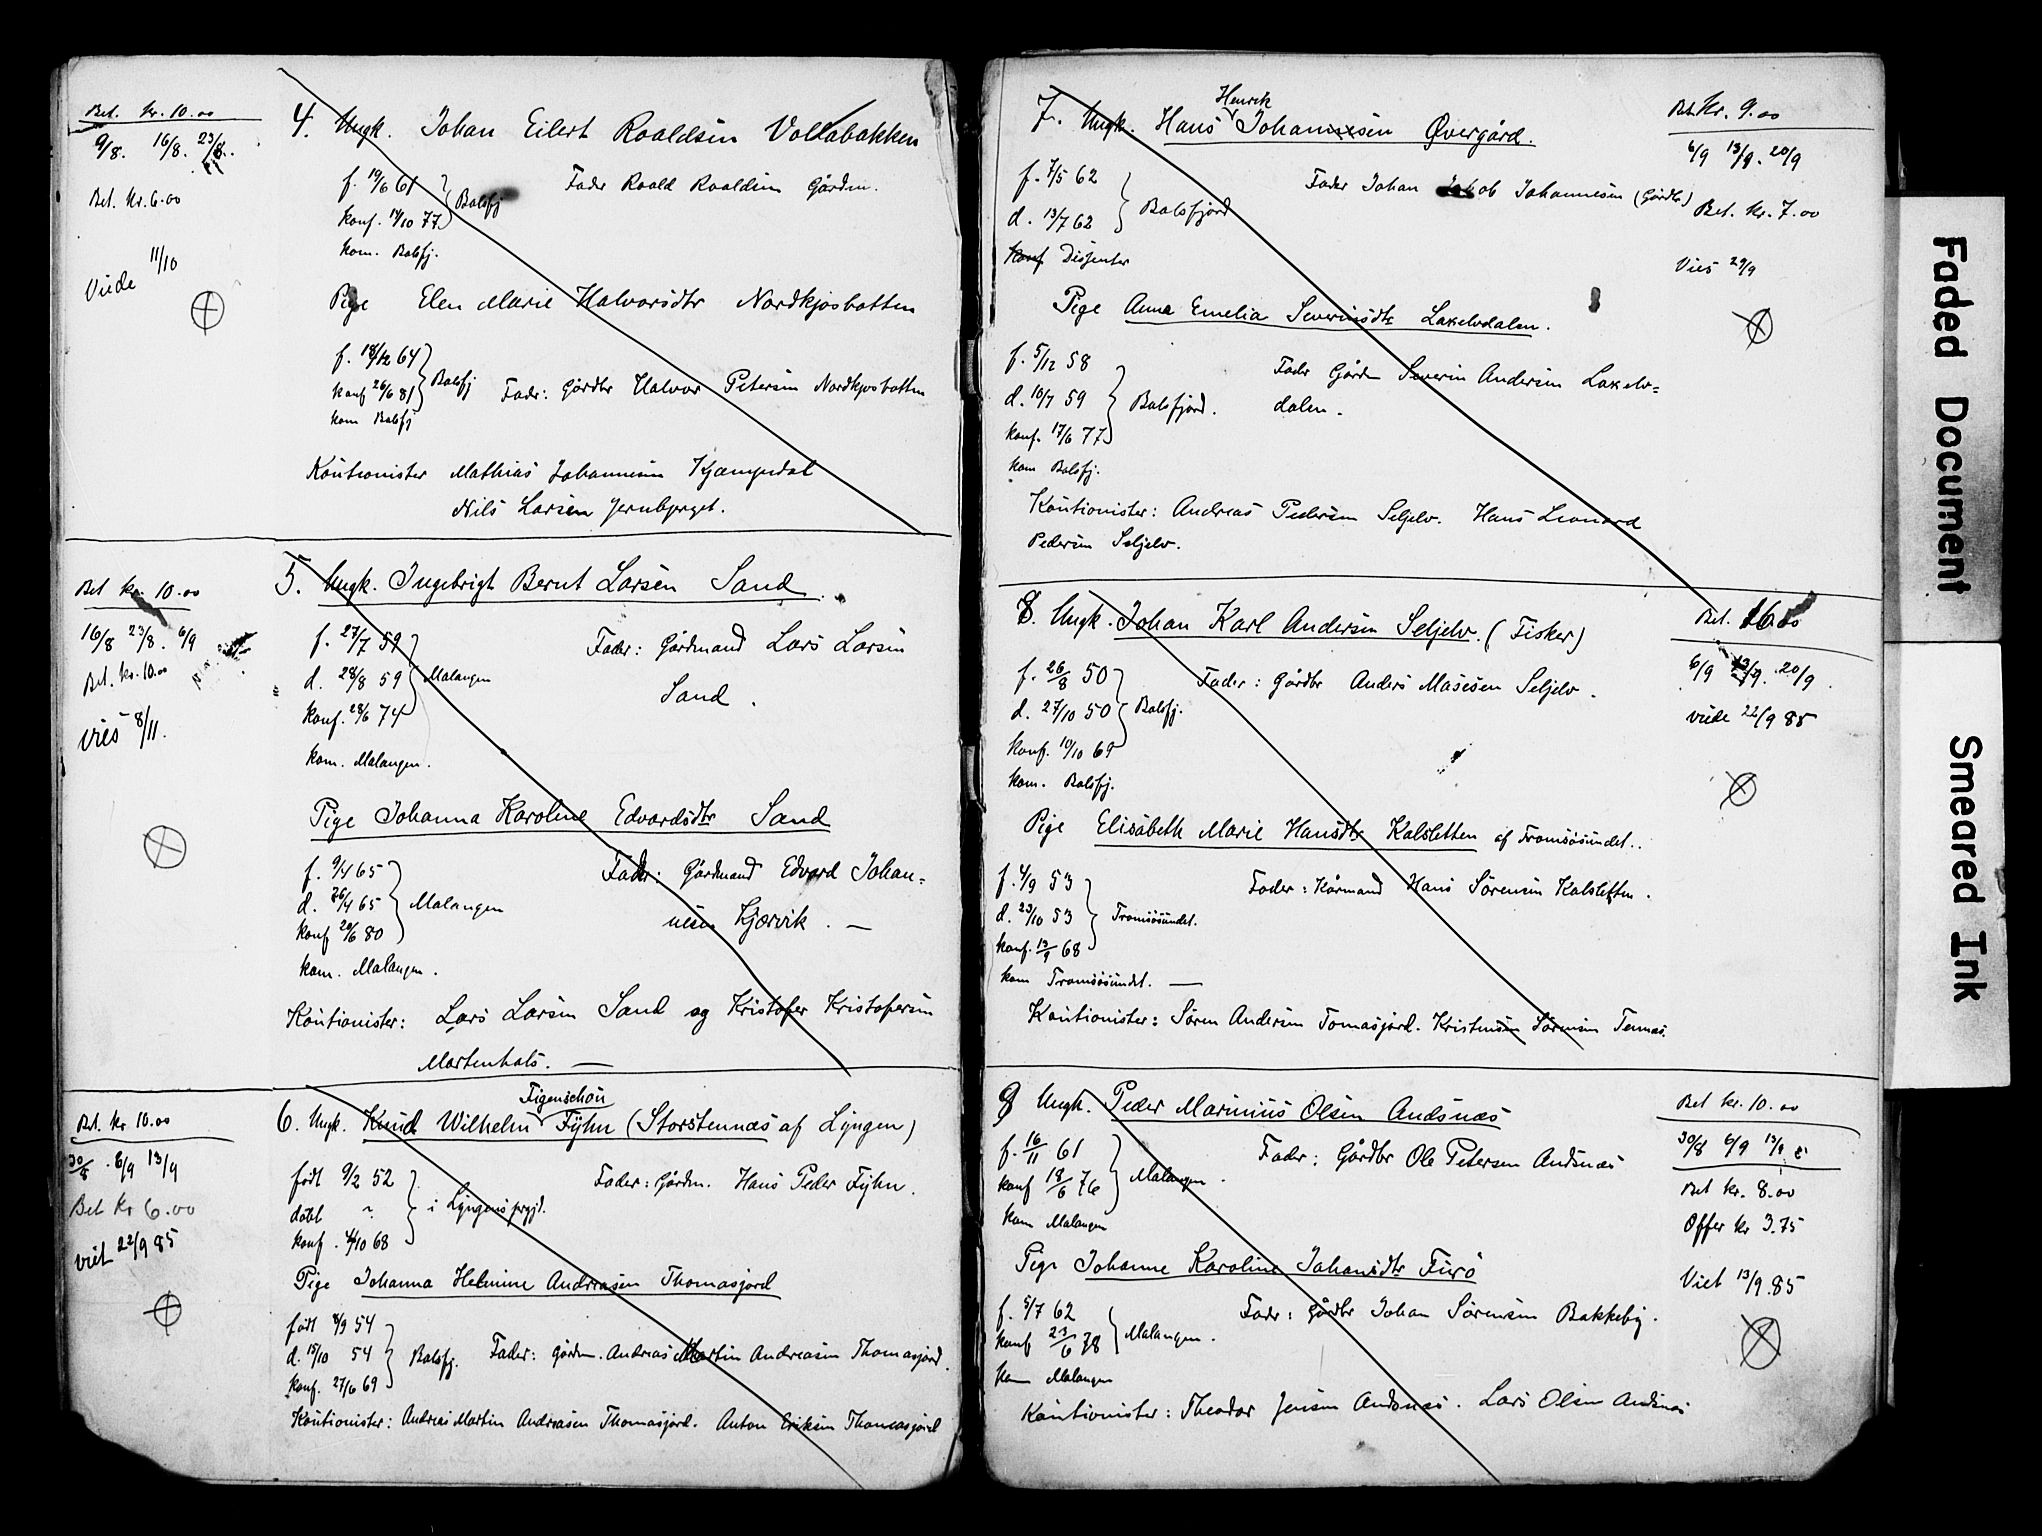 Bet. kr. 10.00
9/8. 16/8. 23/8.
Bet. kr. 6.00
Viede 11/10
4. Ungk. Johan Eilert Roaldsen Vollabakken
f. 19/6 61
konf. 14/10 77
Balsfj
Fader Roald Roaldsen Gårdm.
kom. Balsfj.
Pige Elen Marie Halvorsdtr Nordkjosbotten
f. 18/12 64
konf 26/6 81
Balsfj Fader: Gårdbr Halvor Petersen Nordkjosbotten
kom Balsfj
Kautionister Mathias Johannesen Kjempedal
Nils Larsen Jernbjerget.
Bet kr. 10.00
16/8 23/8. 6/9
Bet. kr. 10.00
Vies 8/11.
5. Ungk. Ingebrigt Bernt Larsen Sand.
f. 27/7 59
d. 28/8 59
konf. 28/6 74
Malangen
Fader: Gårdmand Lars Larsen
Sand.
kom. Malangen.
Pige Johanna Karoline Edvardsdtr Sand
f. 9/4 65
d. 26/4 65
konf 20/6 80
Malangen
Fader: Gårdmand Edvard Johan=
nesen Kjærvik. —
kom. Malangen.
Kautionister: Lars Larsen Sand og Kristofer Kristofersen
Mortenhals. —
Bet. kr 10.00
30/8 . 6/9 13/9
Bet Kr 6.00
viet 22/9 85
Figenschou
6. Ungk. Knud Wilhelm Fyhn (Storstennæs af Lyngen)
født 9/2 52
døbt ~
konf. 4/10 68
i Lyngens prgjd.
Fader: Gårdm. Hans Peder Fyhn.
Pige Johanna Helmine Andreasen Thomasjord
født 8/9 54
d. 15/10 54
konf. 27/6 69
Balsfj. Fader: Gårdm. Andreas Martin Andreasen Thomasjord.
Kautionister: Andreas Martin Andreasen Thomasjord. Anton Eriksen Thomasjord
Henrik
7. Ungk. Hans Johannesen Øvergård.
f. 7/5 62
d. 13/7 62
Balsfjord
Fader Johan Jakob Johannesen (Gårdbr)
konf Dissenter
Pige Anna Emelia Severinsdtr Lakselvdalen.
f. 5/12 58
d. 10/7 59
konf. 17/6 77
Balsfjord.
Fader Gårdm Severin Andersen Lakselv=
dalen.
kom Balsfj.
Kautionister: Andreas Pedersen Seljelv. Hans Leonard
Pedersen Seljelv.
Bet Kr. 9.00
6/9 13/9. 20/9
Bet. kr. 7.00
Vies 29/9
8. Ungk. Johan Karl Andersen Seljelv. (Fisker)
f. 26/8 50
d. 27/10 50
konf. 10/10 69
Balsfj.
Fader: Gårdbr Anders Masesen Seljelv.
kom. Balsfj.
Pige Elisabeth Marie Hansdtr Kalsletten af Tromsøsundet.
f. 4/9 53
d. 23/10 53
konf. 13/9 68
Tromsøsundet.
Fader: Kårmand Hans Sørensen Kalsletten.
kom Tromsøsundet. —
Kautionister: Søren Andersen Tomasjord. Kristensen Sørensen Tennes.
Bet.
6/9 13/9. 20/9
viede 22/9 85
9 Ungk. Peder Marinius Olsen Andsnæs
f. 16/11 61
konf 18/6 76
Malangen.
Fader: Gårdbr Ole Petersen Andsnæs
kom Malangen
Pige Johanne Karoline Johansdtr Furø
f. 5/7 62
konf 23/6 78
Malangen.
Fader: Gårdbr Johan Sørensen Bakkeby.
Kom Malangen
Kautionister: Theodor Jensen Andsnæs. Lars Olsen Andsnæs
Bet kr. 10.00
30/8 6/9 13/9
Bet kr. 8.00
Offer kr 3.75
Viet 13/9.85
Faded Document
Smeared Ink